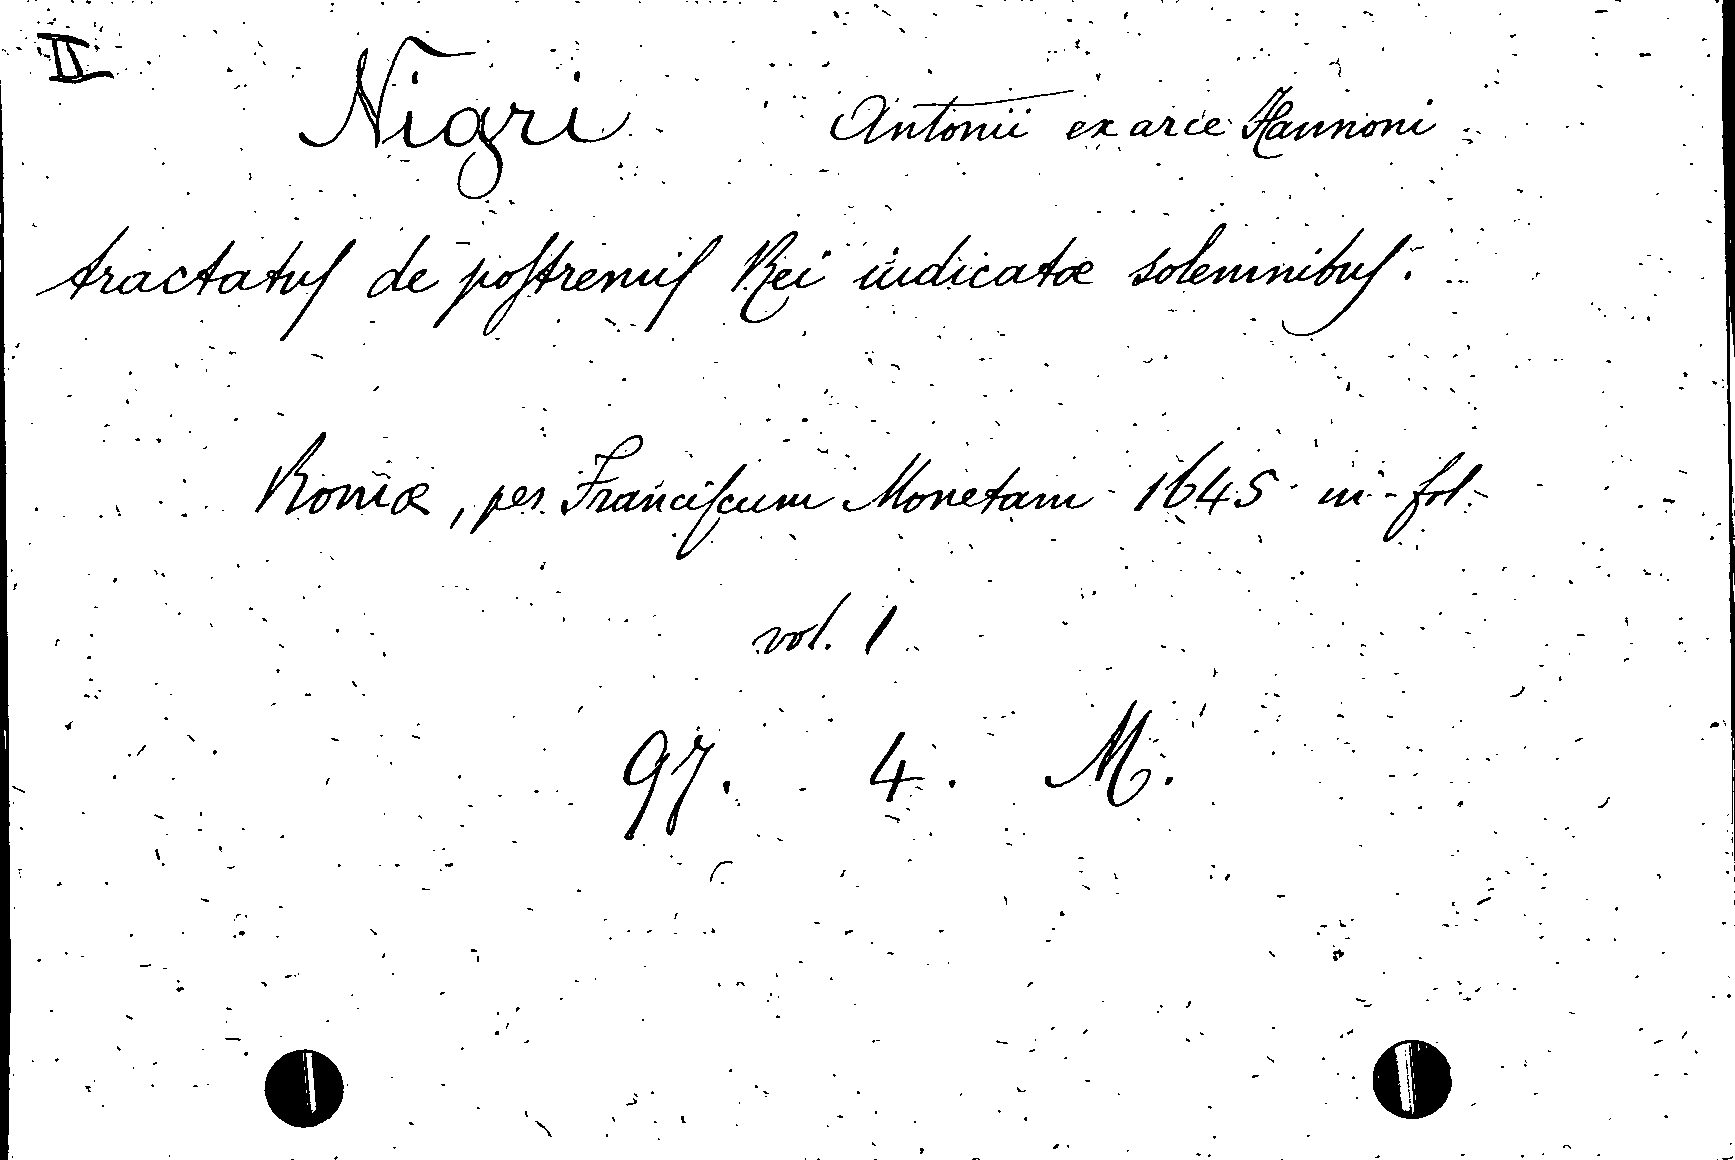 II
Nigri Antonii ex arce Hannoni
tractatuſ de poſtremiſ Rei iudicatæ solemnibuſ.
Romæ, per Franciſcum Monetam 1645 in-fol-
vol. 1
97. 4. M.